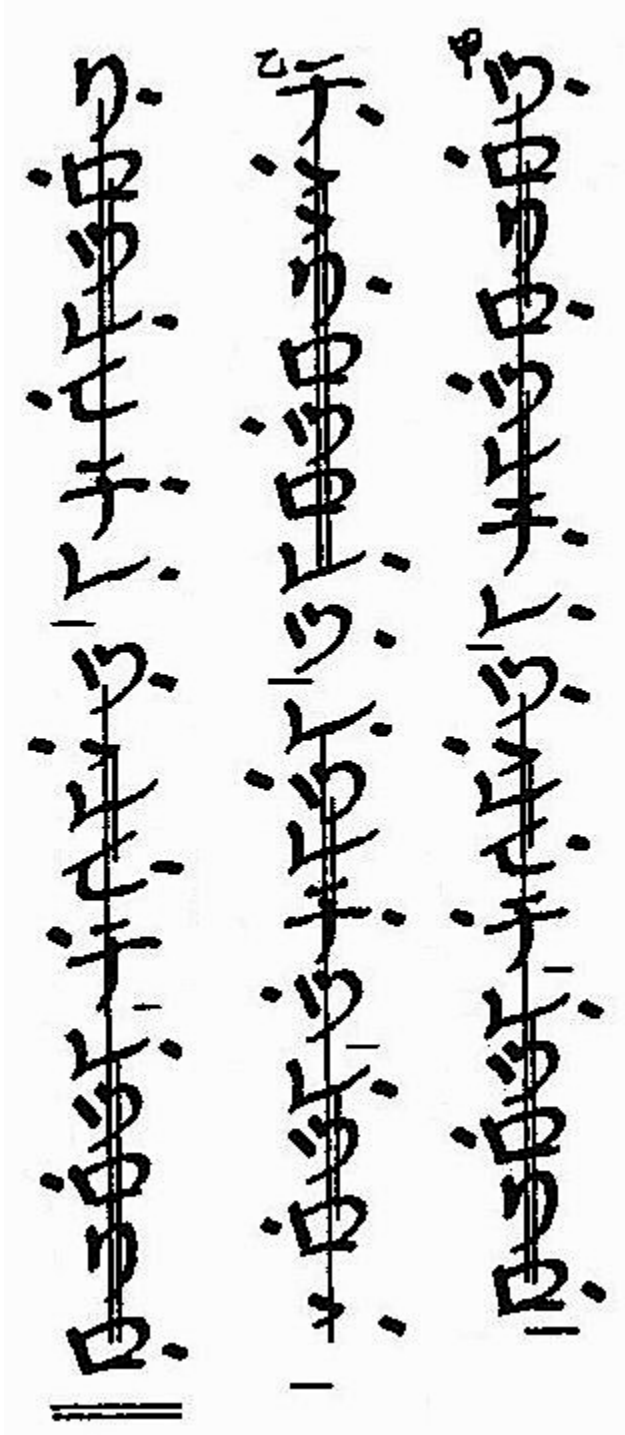 甲
ツロリロツレチレツゝレヒチレツロリロ
乙
チゝゝリロツロレツレツレチツレツロゝ
リロツレヒチレツゝレヒチレツロリロ